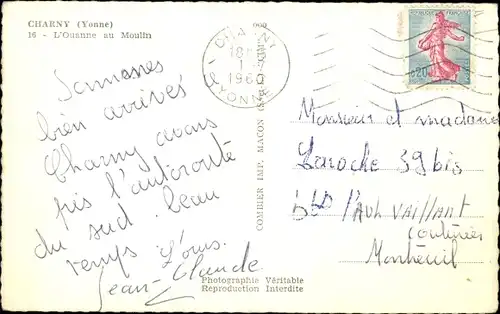 CHARNY (Yonne)
16 - L'Ouanne au Moulin
CHARNY
18H
1
1960
YONNE
0,20
Sommes
bien arrivés
Charny avons
pris l'autoroute
du sud. beau
temps
Jean-Claude
COMBIER IMP. MACON
Photographie Véritable
Reproduction Interdite
Monsieur et madame
Laroche 39 bis
Bld Paul VAILLANT
Couturier
Montreuil